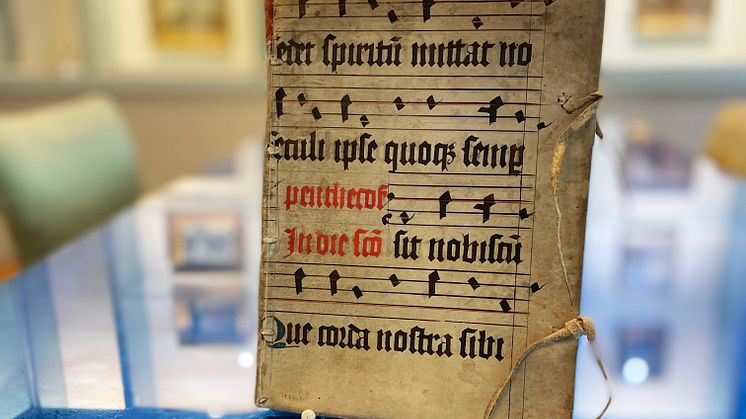 ecet spiritū mittat no
seculi ipse quoqꝫ semꝑ
penthecos
In die scō sit nobiscū
Que corda nostra sibi